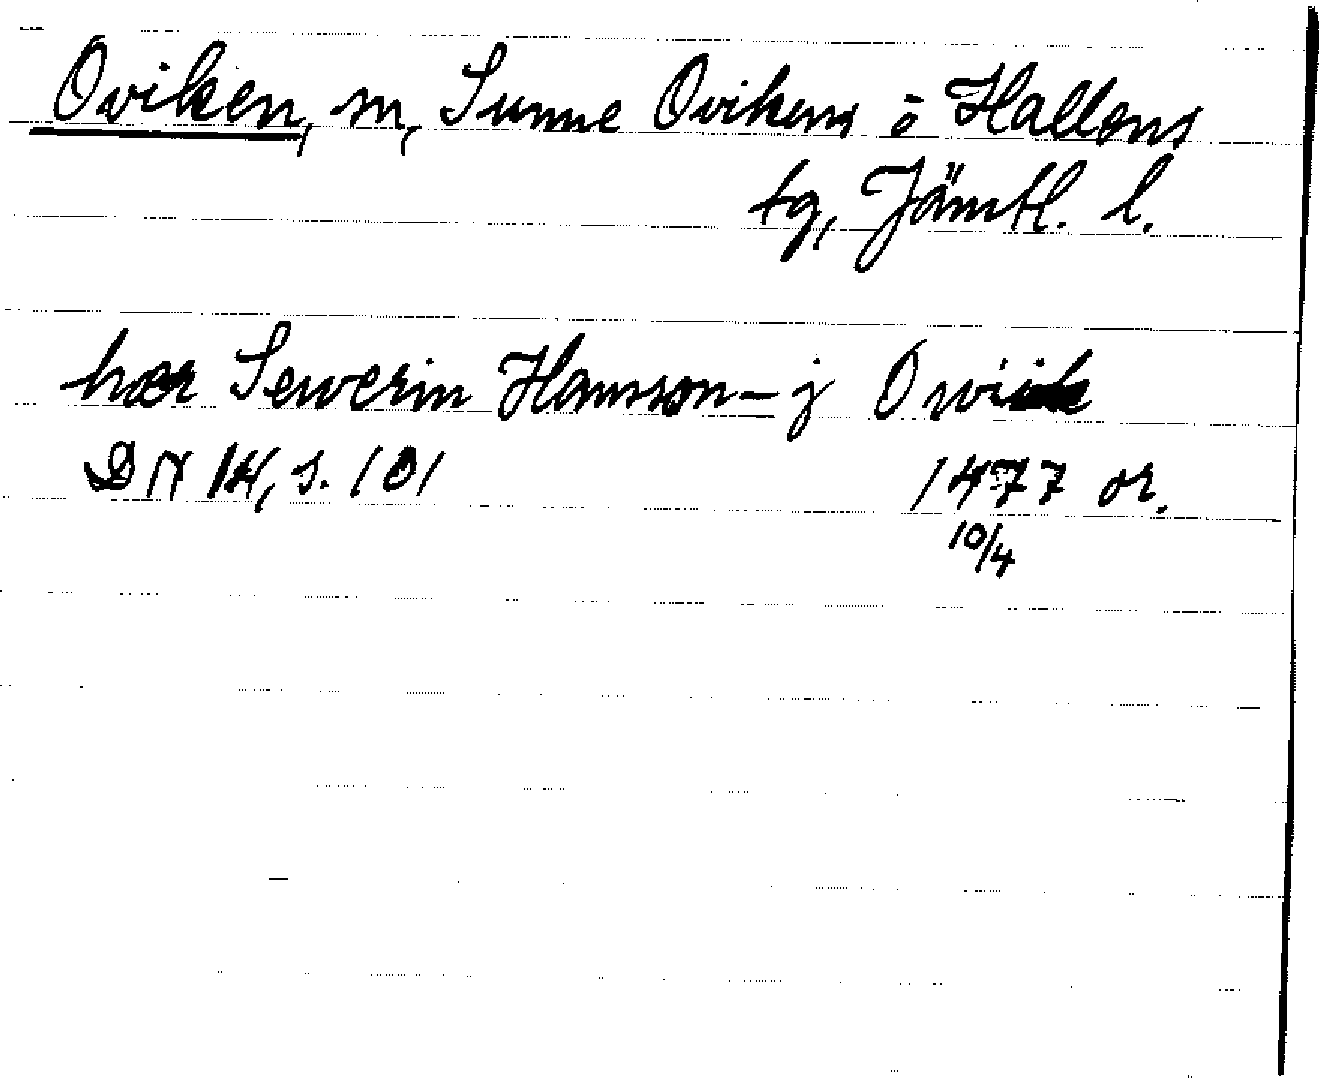 Oviken, sn, Sunne Ovikens o Hallens
tg, Jämtl. l.
hær Sewerin Hansson – j Owiik
DN 14, s. 101 1477 or.
10/4